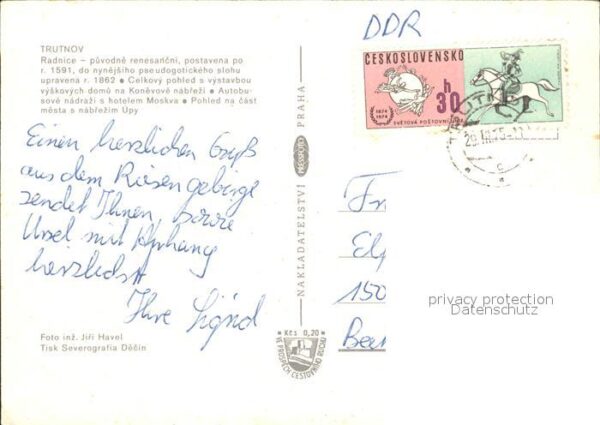 TRUTNOV
Radnice – původně renesanční, postavena po
r. 1591, do nynějšího pseudogotického slohu
upravena r. 1862 • Celkový pohled s výstavbou
výškových domů na Koněvově nábřeží • Autobu-
sové nádraží s hotelem Moskva • Pohled na část
města s nábřežím Upy
Einen herzlichen Gruß
aus dem Riesengebirge
sendet Ihnen, sowie
Ursel mit Anhang
herzlichst
Ihre Sigrid
Foto inž. Jiří Havel
Tisk Severografia Děčín
NAKLADATELSTVÍ PRESSFOTO PRAHA
Kčs 0,20
VE PROSPĚCH CESTOVNÍHO RUCHU
DDR
ČESKOSLOVENSKO
1874
1974
h
30
SVĚTOVÁ POŠTOVNÍ
TRUTNOV
Fr
150
privacy protection
Datenschutz